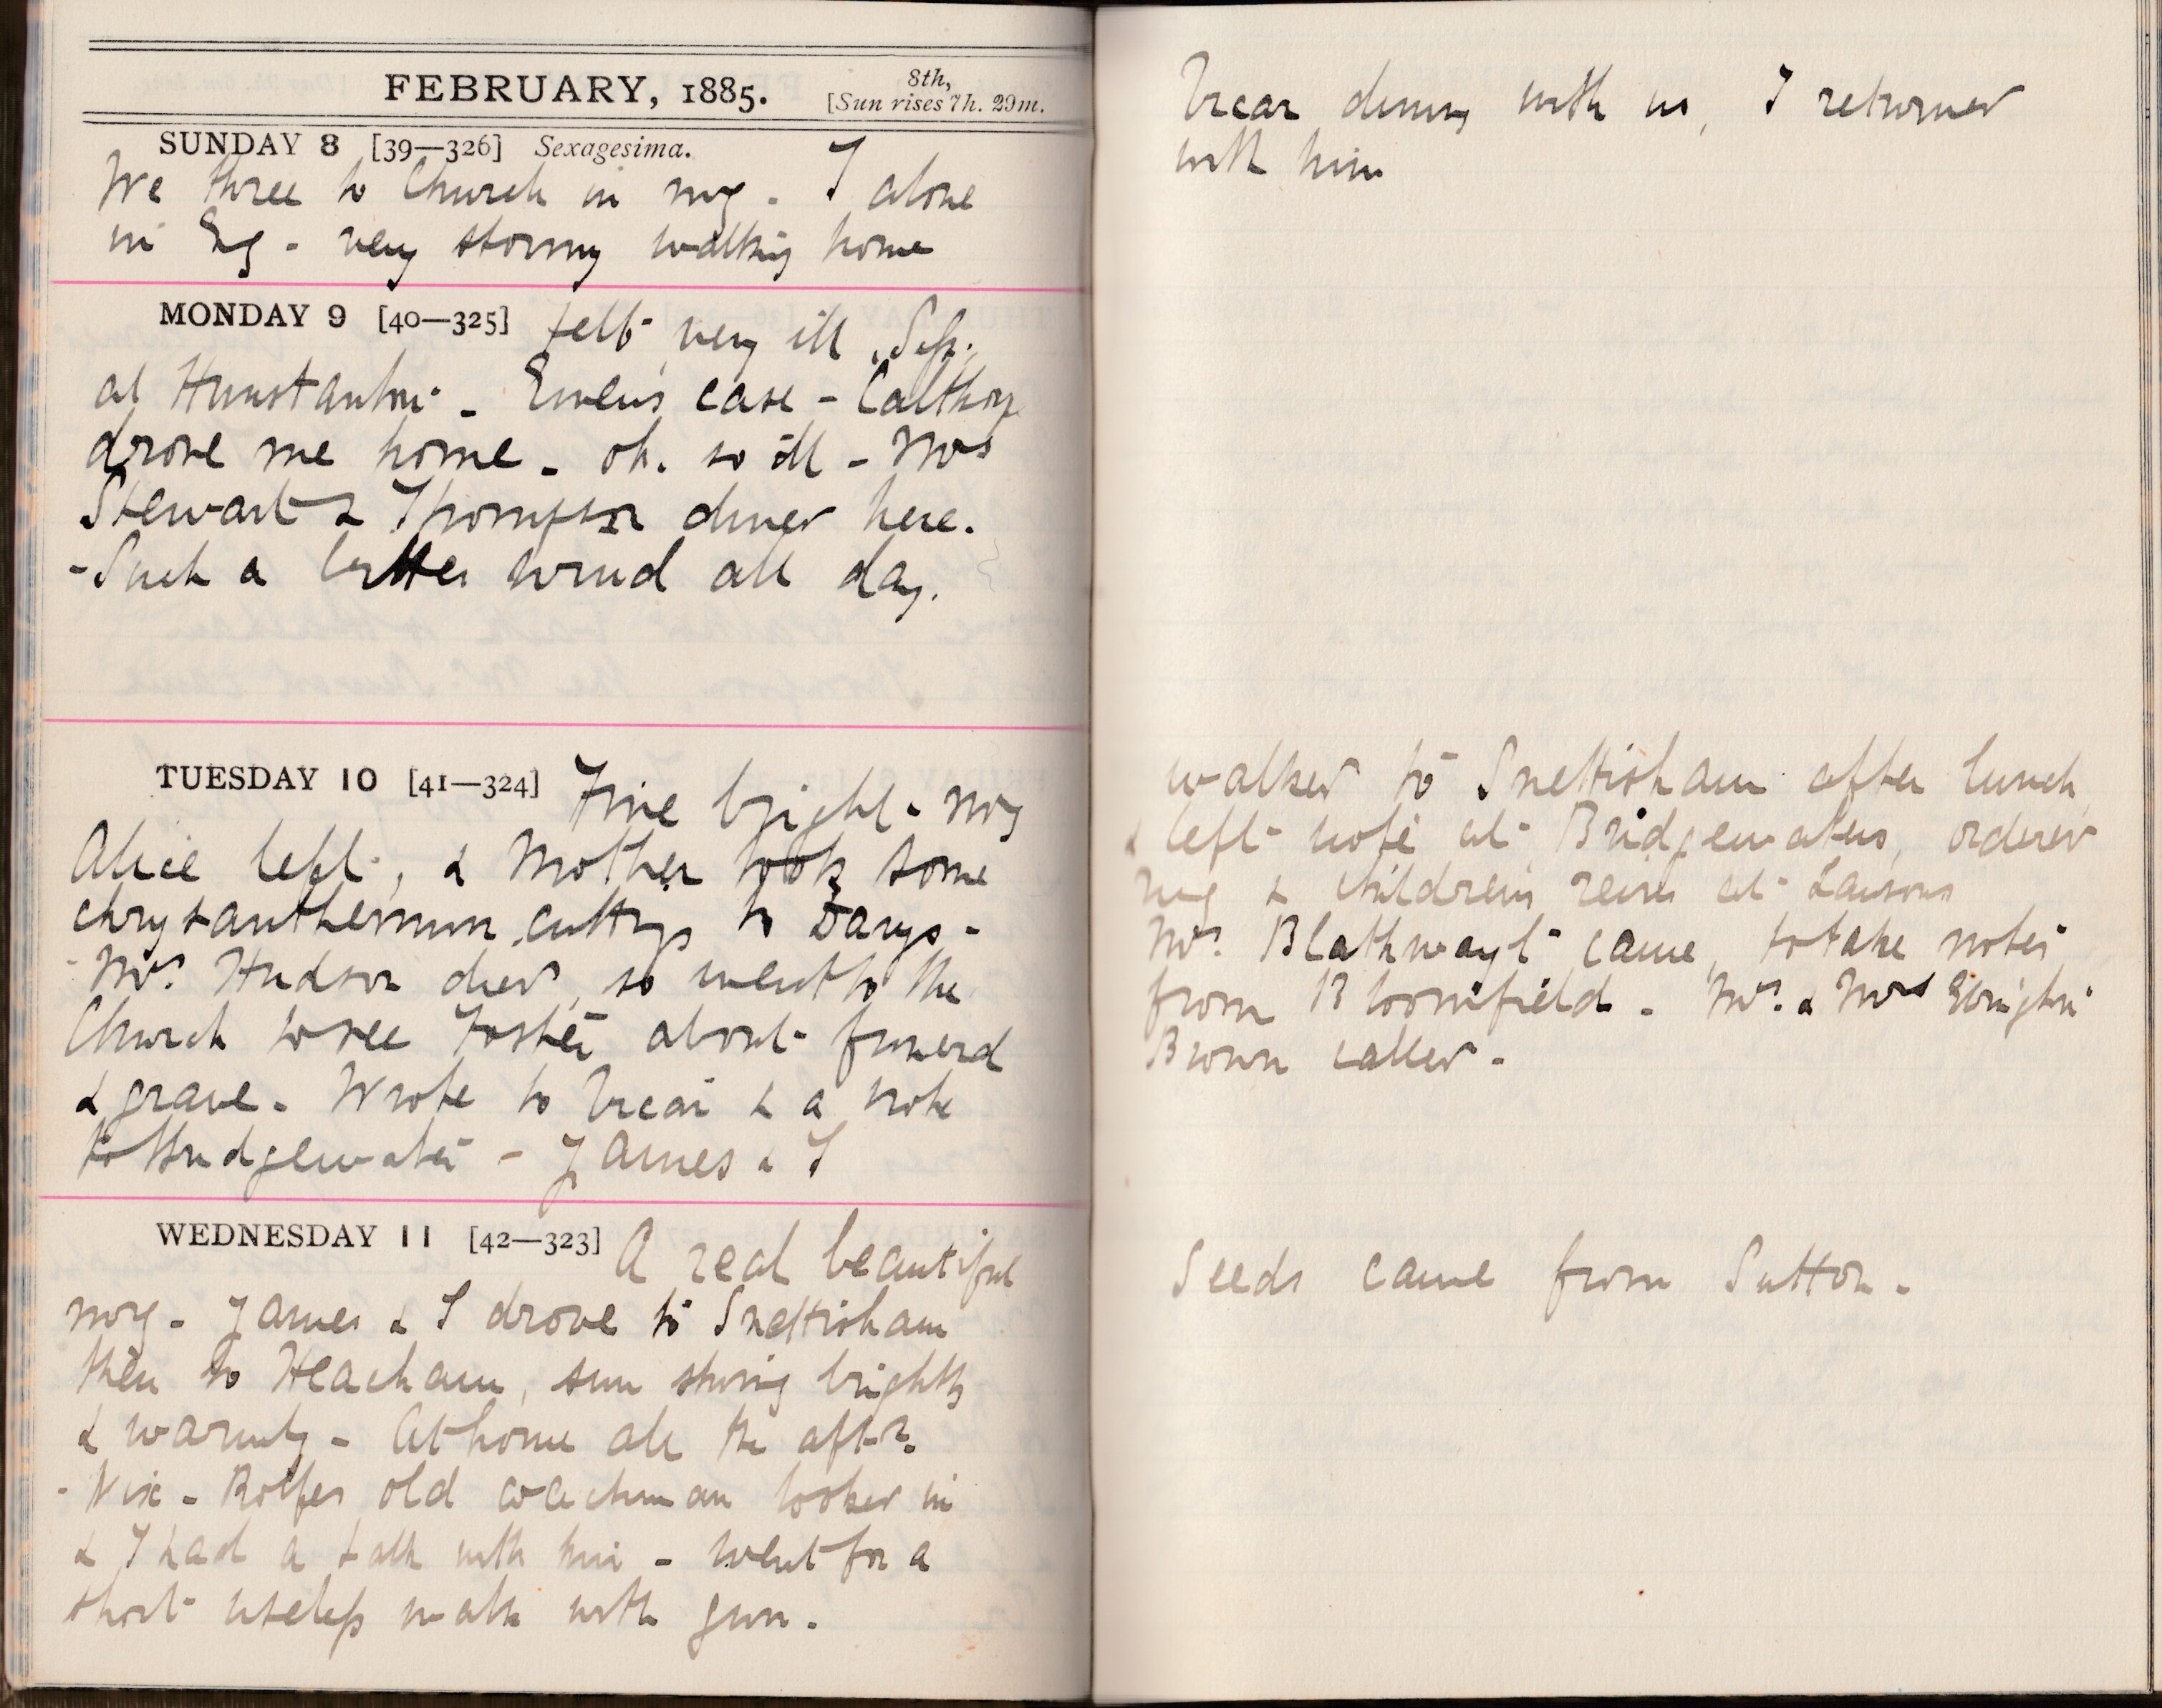 FEBRUARY, 1885.
8th,
[Sun rises 7h. 29m.
SUNDAY 8 [39—326] Sexagesima.
We three to Church in mg - I alone
in Eg - very stormy walking home
MONDAY 9 [40—325] felt very ill, Sess:
at Hunstanton - case - Calthrop
drove me home - oh. so ill - Mrs
Stewart & Thompson dined here.
- Such a bitter wind all day.
TUESDAY 10 [41—324] Fine bright - mg
Alice left, & Mother took some
chrysanthemum cuttings to Davys -
- Mr. Hudson died, so went to the
Church to see Foster about funeral
& grave - Wrote to Vicar & a note
to Bridgewater - James & I
WEDNESDAY 11 [42—323] A real beautiful
morg - James & I drove to Snettisham
then to Heacham, sun shining brightly
& warmly - At home all the aftn.
- Nix - Rolfes old coachman looked in
& I had a talk with him - went for a
short useless walk with gun.
Vicar dining with us, I returned
with him
walked to Snettisham after lunch,
& left note at Bridgewaters, ordered
rug & childrens reins at Lawsons
Mr. Blathwayt came, to take notes
from Bloomfield - Mr. & Mrs
Brown called -
Seeds came from Sutton -